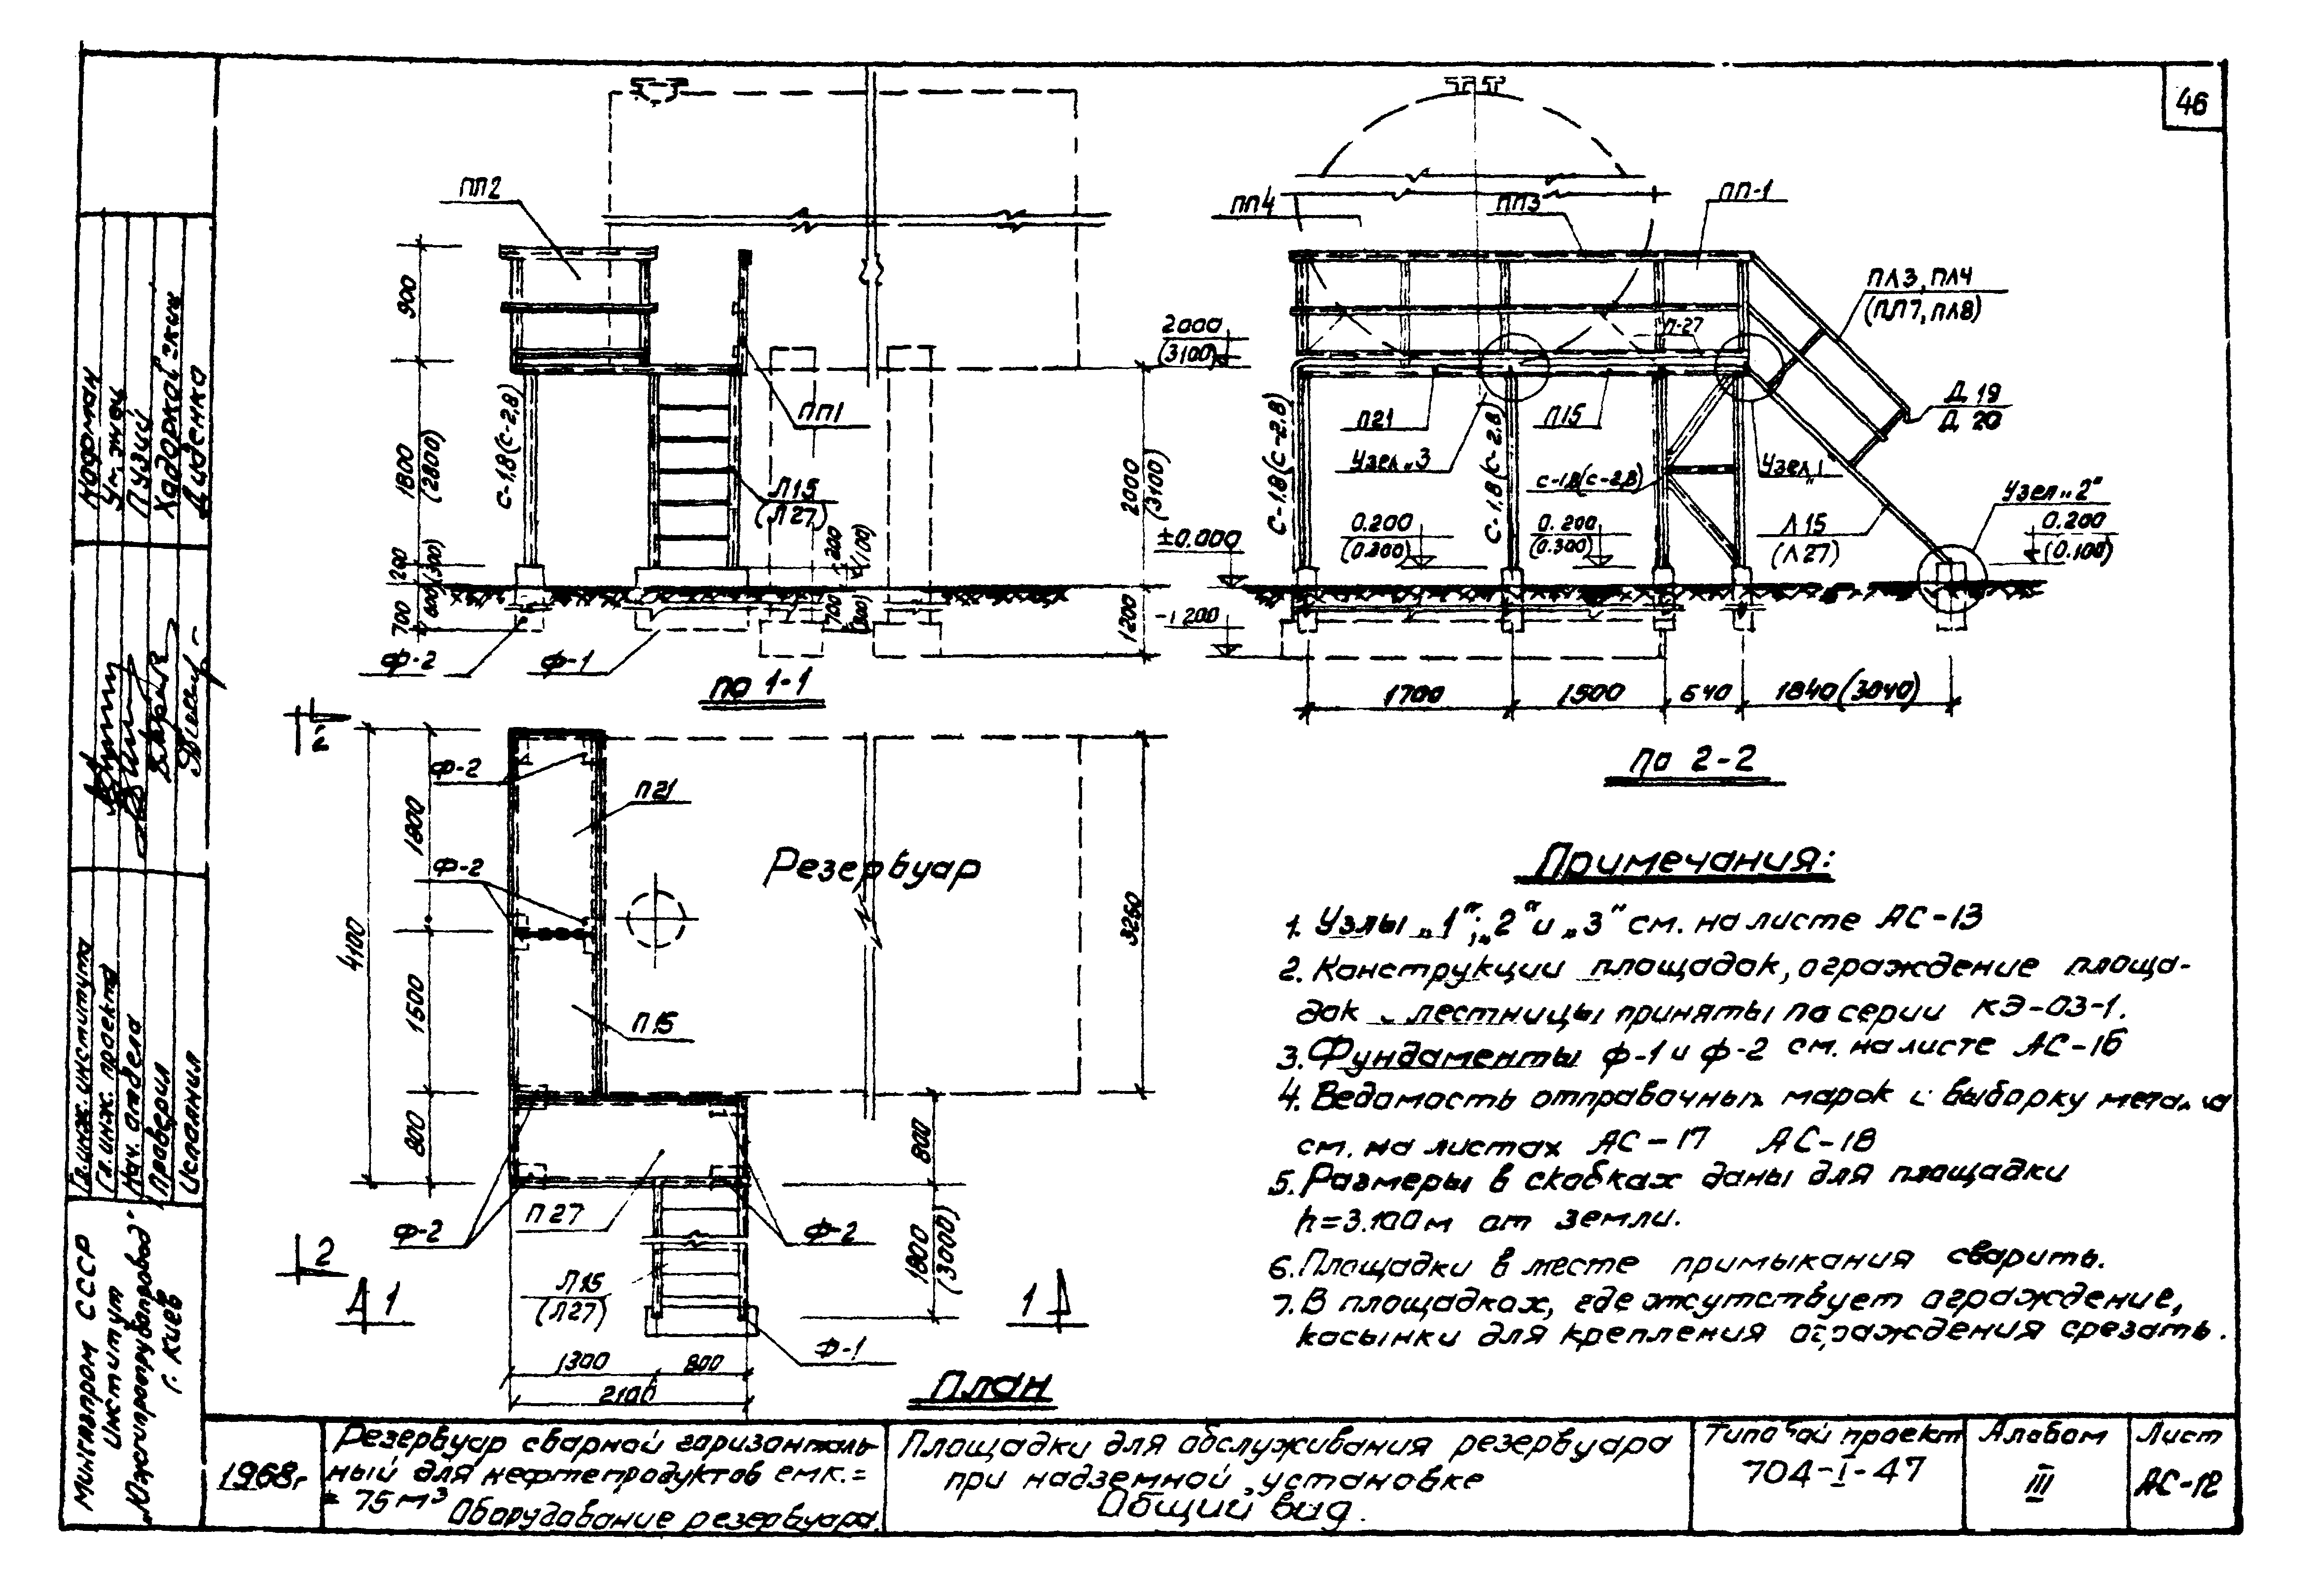 46
ПП2
900
1800
(2800)
200
(300)
700
(600)
С-1,8(С-2,8)
ПП1
Л15
(Л27)
200
(100)
700
2000
(3100)
1200
Ф-2
Ф-1
по 1-1
ПП4
ПП3
ПП-1
ПЛ3, ПЛ4
(ПЛ7, ПЛ8)
П-27
2000
(3100)
Д 19
Д 20
П21
П15
Узел „3
Узел „1
С-1,8(С-2,8)
С-1,8(С-2,8)
С-1,8(С-2,8)
Узел „2"
0.200
(0.300)
0.200
(0.300)
Л15
(Л27)
0.200
(0.100)
±0.000
-1 200
1700
1500
640
1840(3040)
по 2-2
2
Ф-2
П21
Ф-2
1800
4100
1500
800
П15
Резервуар
3260
Ф-2
П27
Ф-2
800
1800
(3000)
2
1
Л15
(Л27)
1
Ф-1
1300
800
2100
План
Примечания:
1. Узлы „1"; „2" и „3" см. на листе АС-13
2. Конструкции площадок, ограждение площа-
док и лестницы приняты по серии КЭ-03-1.
3. Фундаменты Ф-1 и Ф-2 см. на листе АС-16
4. Ведомость отправочных марок и выборку металла
см. на листах АС-17 АС-18
5. Размеры в скобках даны для площадки
h=3.100м от земли.
6. Площадки в месте примыкания сварить.
7. В площадках, где отсутствует ограждение,
косынки для крепления ограждения срезать.
Гл. инж. института
Гл. инж. проекта
Нач. отдела
Проверил
Исполнил
Кофман
Пузий
Диденко
Мингазпром СССР
Институт
„Южгипротрубопровод"
г. Киев
1968г
Резервуар сварной горизонталь-
ный для нефтепродуктов емк.=
= 75м³
Оборудование резервуара.
Площадки для обслуживания резервуара
при надземной установке
Общий вид.
Типовой проект
704-I-47
Альбом
III
Лист
АС-12